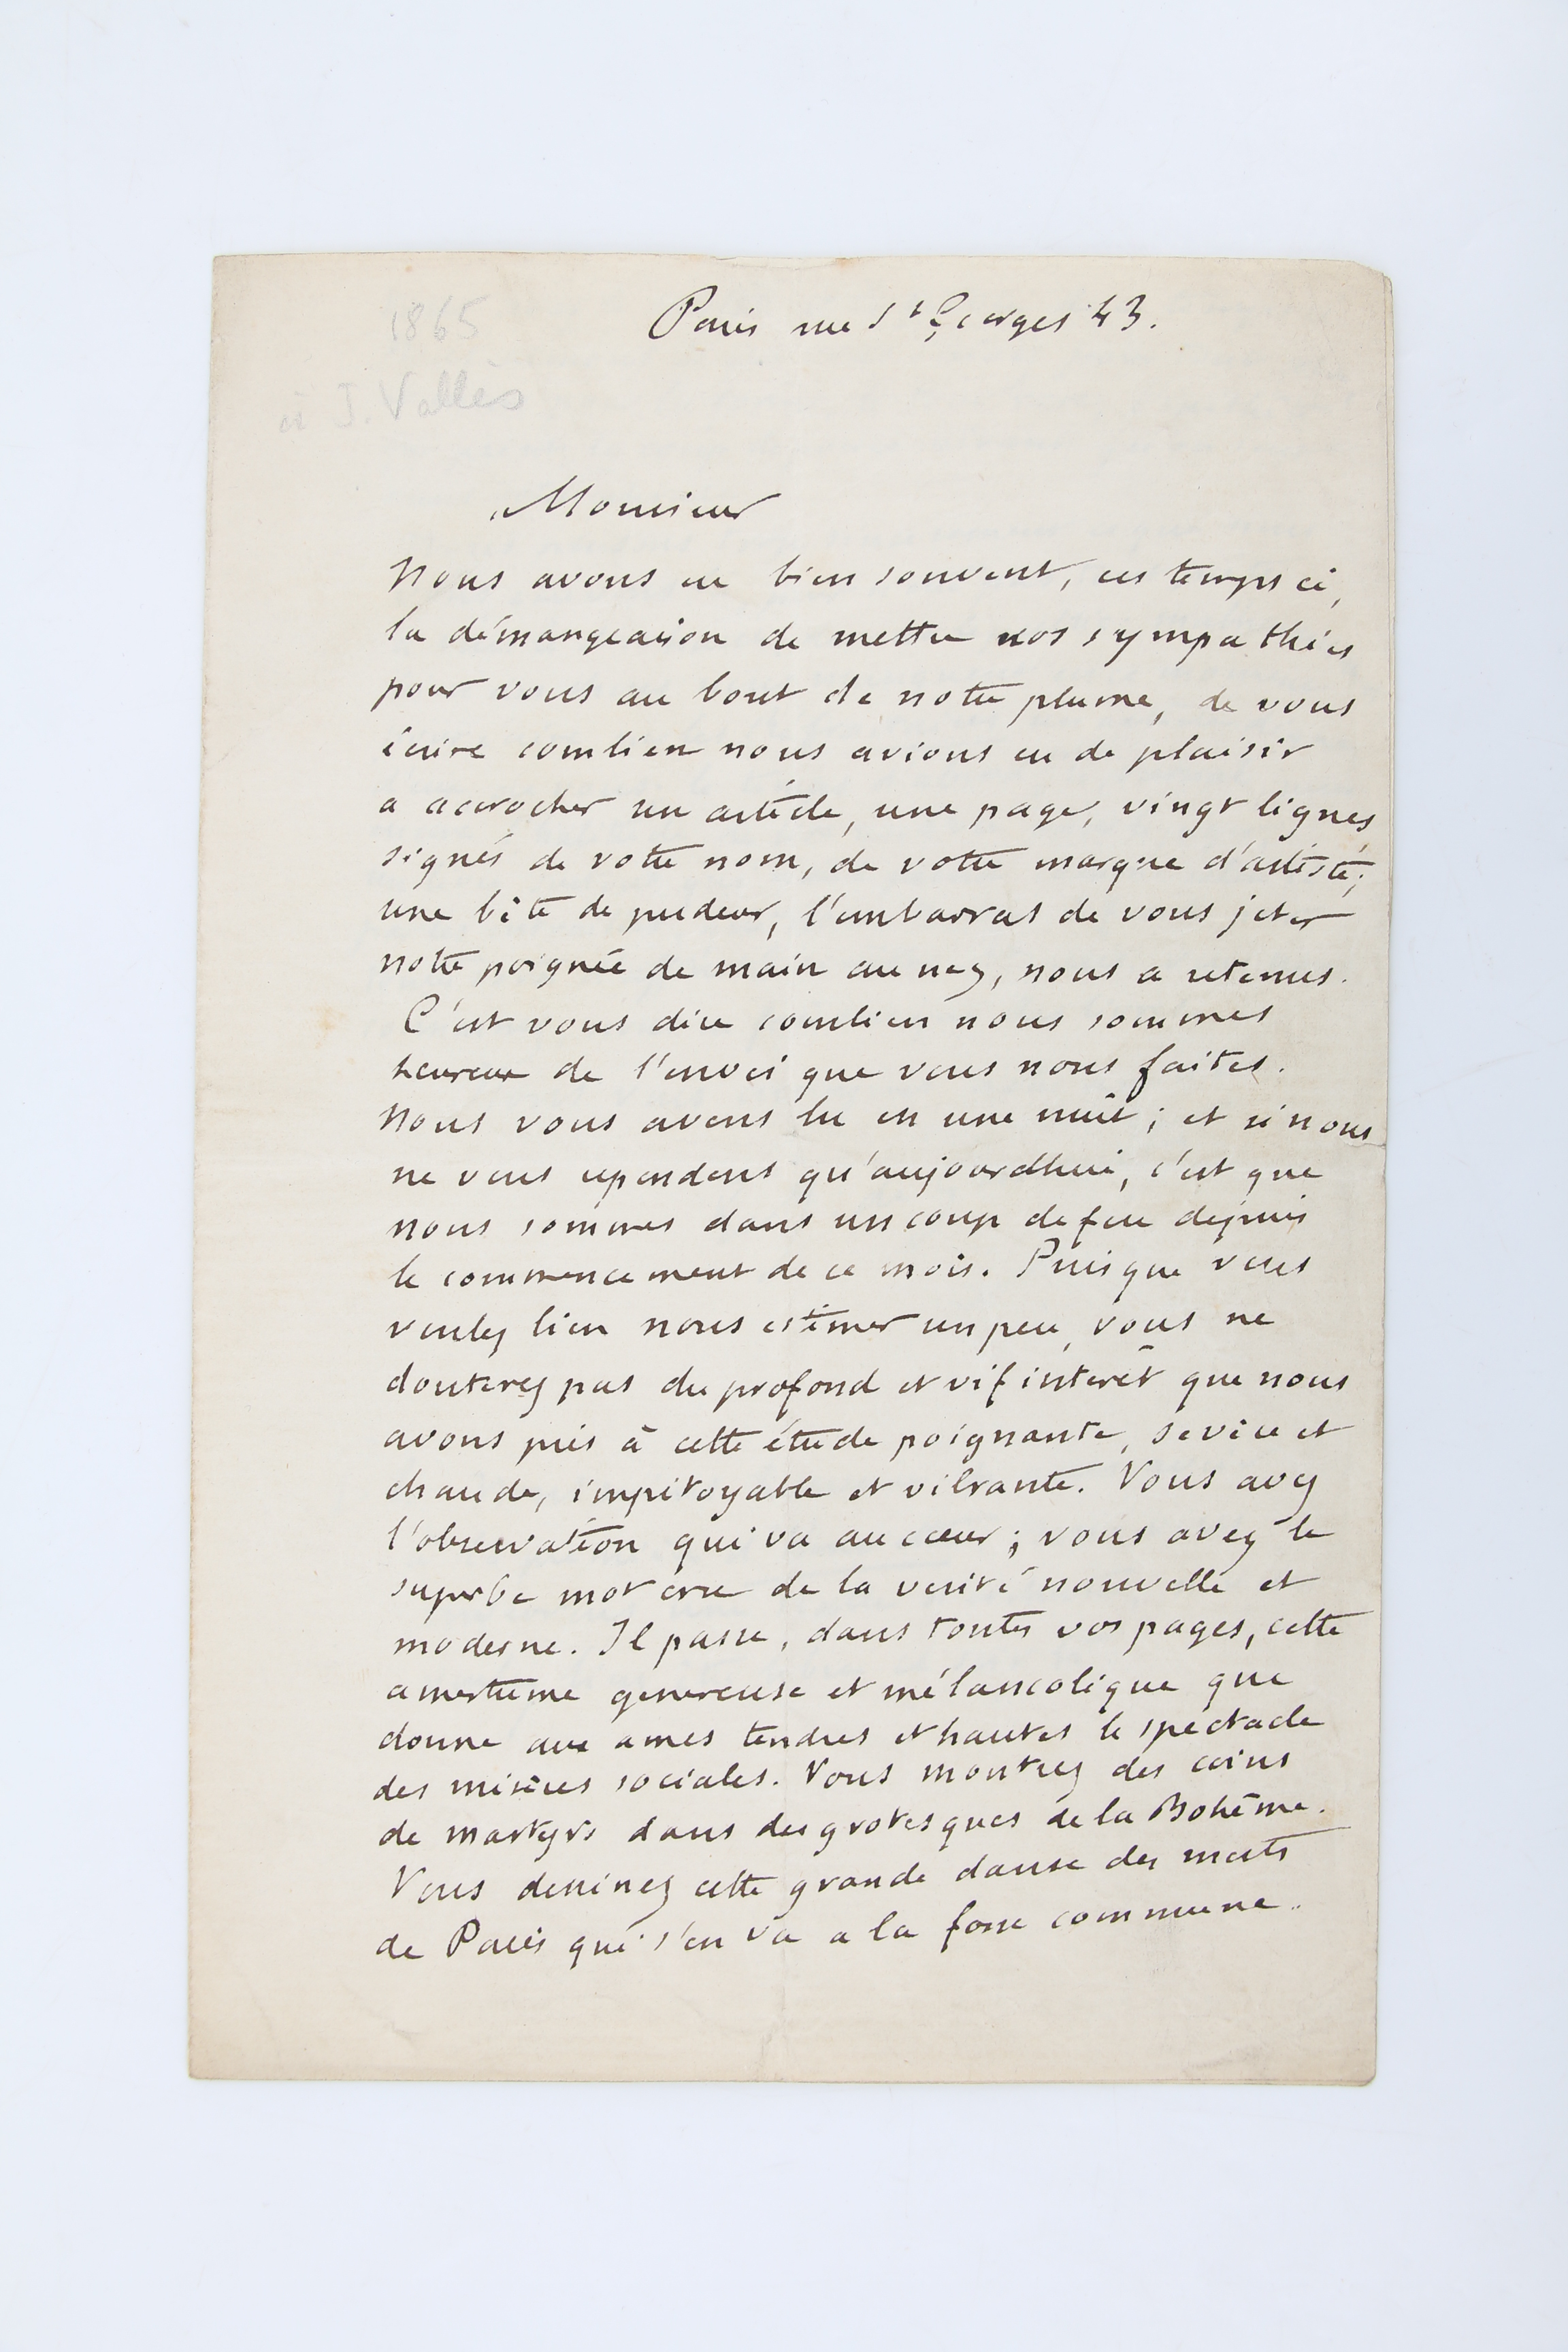 1865
à J. Vallès
Paris rue St Georges 43.
Monsieur
Nous avons eu bien souvent, ces temps ci,
la démangeaison de mettre nos sympathies
pour vous au bout de notre plume, de vous
écrire combien nous avions eu de plaisir
a accrocher un article, une page, vingt lignes
signés de votre nom, de votre marque d'artiste;
une bête de pudeur, l'embarras de vous jeter
notre poignée de main au nez, nous a retenus.
C'est vous dire combien nous sommes
heureux de l'envoi que vous nous faites.
Nous vous avons lu en une nuit; et si nous
ne vous repondons qu'aujourdhui, c'est que
nous sommes dans un coup de feu depuis
le commencement de ce mois. Puisque vous
voulez bien nous estimer un peu, vous ne
douterez pas du profond et vif interêt que nous
avons pris à cette étude poignante, sevère et
chaude, impitoyable et vibrante. Vous avez
l'observation qui va au cœur; vous avez le
superbe mot cru de la verité nouvelle et
moderne. Il passe, dans toutes vos pages, cette
amertume genereuse et mélancolique que
donne aux ames tendres et hautes le spectacle
des misères sociales. Vous montrez des coins
de martyrs dans des grotesques de la Bohême.
Vous dessinez cette grande danse des morts
de Paris qui s'en va a la fosse commune.